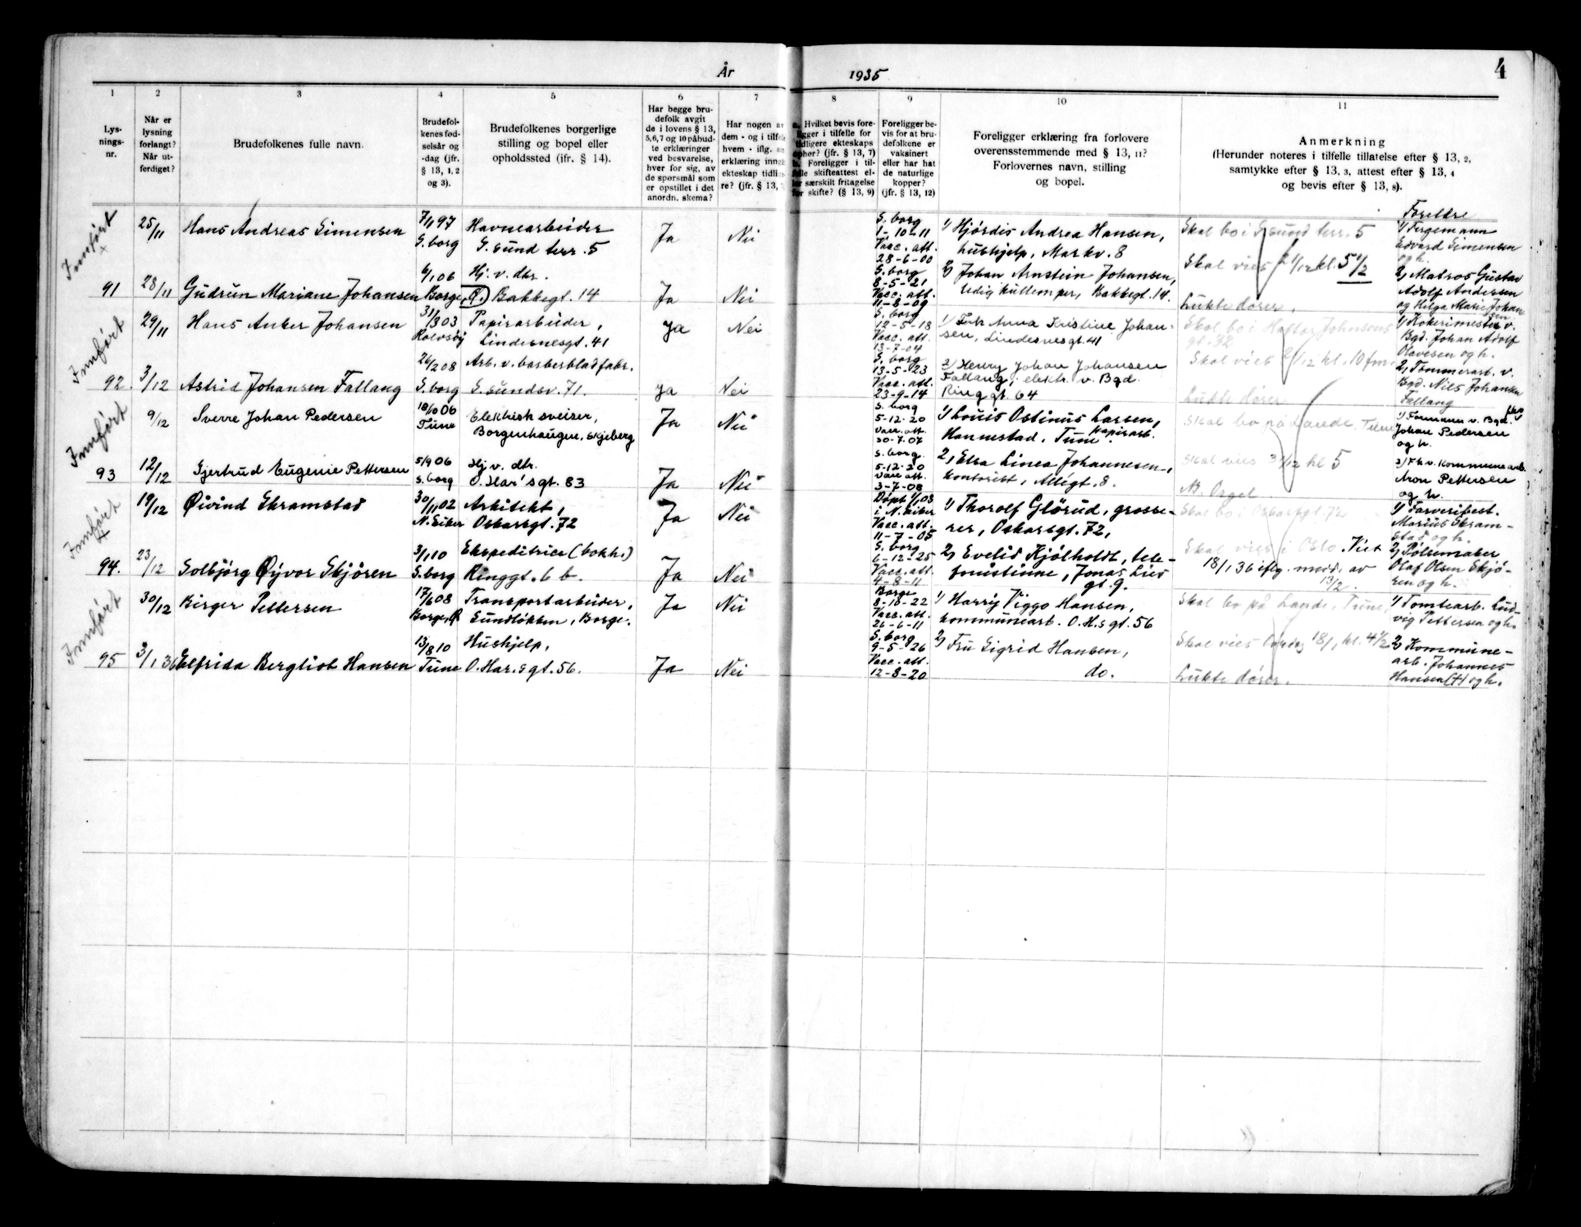 År 1935
4
1 2 3 4 5 6 7 8 9 10 11
Lys-
nings-
nr.
Når er
lysning
forlangt?
Når ut-
ferdiget?
Brudefolkenes fulle navn.
Brudefol-
kenes fød-
selsår og
-dag (jfr.
§ 13, 1, 2
og 3).
Brudefolkenes borgerlige
stilling og bopel eller
opholdssted (ifr. § 14).
Har begge bru-
defolk avgit
de i lovens § 13,
5,6,7 og 10 påbud-
te erklæringer
ved besvarelse,
hver for sig, av
de spørsmål som
er opstillet i det
anordn. skema?
Har nogen av
dem - og i tilfel
hvem - iflg.
erklæring inn
ekteskap tidli
re? (jfr. § 13,
Hvilket bevis fore-
ligger i tilfelle for
tidligere ekteskaps
ophør? (jfr. § 13, 7)
Foreligger i til-
felle skifteattest el-
særskilt fritagelse
for skifte? (§ 13, 9)
Foreligger be-
vis for at bru-
defolkene er
vaksinert
eller har hat
de naturlige
kopper?
(jfr. § 13, 12)
Foreligger erklæring fra forlovere
overensstemmende med § 13, 11?
Forlovernes navn, stilling
og bopel.
Anmerkning
(Herunder noteres i tilfelle tillatelse efter § 13, 2,
samtykke efter § 13, 3, attest efter § 13, 4
og bevis efter § 13, 8).
Foreldre
Innført
25/11 Hans Andreas Simensen 7/1 97 S.borg Havnearbeider G.sund terr. 5 Ja Nei
S. borg
1-10-11
Vacc. att.
28-6-00
1) Hjørdis Andrea Hansen,
hushjelp, Markv. 8
Skal bo i G.sund terr. 5
Skal vies 1/12 kl. 5 1/2
1) Fergemann
Edvard Simensen
og h.
91 28/11 Gudrun Mariane Johansen 6/1 06 Borge Hj. v. dtr. Bakkegt. 14 Ja Nei
S. borg
8-5-21
Vacc. att.
11-8-09
2) Johan Arnstein Johansen,
ledig kullemper, Bakkegt. 14
Lukte dører.
2) Matros Gustav
Adolf Andersen
og Helga Marie Johansen
Innført
29/11 Hans Anker Johansen 31/8 03 Rolvsøy Papirarbeider,
Lindesnesgt. 41 Ja Nei
S. borg
12-5-18
Vacc. att.
13-7-04
1) Frk Anna Kristine Johan-
sen, Lindesnesgt. 41
1) Kokerimester v.
Bgd. Johan Adolf
Olavesen og h.
92. 3/12 Astrid Johansen Fallang 26/2 08 S.borg Arb. v. barberbladfabr.
G.sundsv. 71. Ja Nei
S. borg
13-5-23
Vacc. att.
23-9-14
2) Henry Johan Johansen
Fallang, elekh v. Bgd.
Ringgt 64
Skal vies 21/12 kl. 10 fm.
Lukte dører
2) Tømmerarb. v.
Bgd. Nils Johansen
Fallang
Innført
9/12 Sverre Johan Pedersen 10/10 06 Tune Elektrisk sveiser,
Borgenhaugen, Skjeberg Ja Nei
S. borg
5-12-20
Vacc. att.
30-7-07
1) Louis Ostinus Larsen,
Hannestad, Tune. Papirarb.
Skal bo på Lande, Tune
1) Formann v. Bgd.
Johan Pedersen
og h.
93 12/12 Gjertrud Eugenie Pettersen 5/9 06 S.borg Hj v. dtr.
O. Har's gt. 83 Ja Nei
S. borg
5-12-20
Vacc att.
3-7-08
2) Elsa Linea Johannesen,
kontorist, Allégt. 8.
Skal vies 31/12 kl 5
M. Orgel
2) Fhv. kommunearb.
Aron Pettersen
og h.
Innført
19/12 Øivind Ekramstad 30/11 02 N. Eiker Arkitekt,
Oskarsgt. 72 Ja Nei
Døpt 1/1 03
i N. Eiker
Vacc. att.
11-7-05
1) Thorolf Glörud, grosse-
rer, Oskarsgt. 72,
Skal bo i Oskarsgt. 72
1) Garveribest.
Marius Ekram-
stad og h.
94. 23/12 Solbjørg Øyvor Skjören 3/1 10 S.borg Ekspeditrice (bokh.)
Ringgt. 6 b. Ja Nei
S. borg
6-12-25
Vacc. att.
4-8-11
2) Evelid Kjölholdt, tele-
fonistinne, Jonas Lies
gt. 9.
Skal vies i Oslo. Viet
18/1 36 iflg. medd. av
13/2
2) Pölsemaker
Olaf Olsen Skjö-
ren og h.
Innført
30/12 Birger Pettersen 17/6 08 Borge Transportarbeider,
Sundlökken, Borge. Ja Nei
Borge
8-10-22
Vacc. att.
26-6-11
1) Harry Viggo Hansen,
kommunearb. O.H.s gt. 56
Skal bo på Lande, Tune
1) Tomtearb. Lud-
vig Pettersen og h.
95 3/1 36 Elfrida Bergliot Hansen 13/8 10 Tune Hushjelp,
O. Har.s gt. 56. Ja Nei
S. borg
9-5-26
Vacc. att.
12-8-20
2) Fru Sigrid Hansen,
do.
Skal vies lørdag 18/1 kl. 4 1/2
Lukte dører.
2) Kommune-
arb. Johannes
Hansen (†) og h.